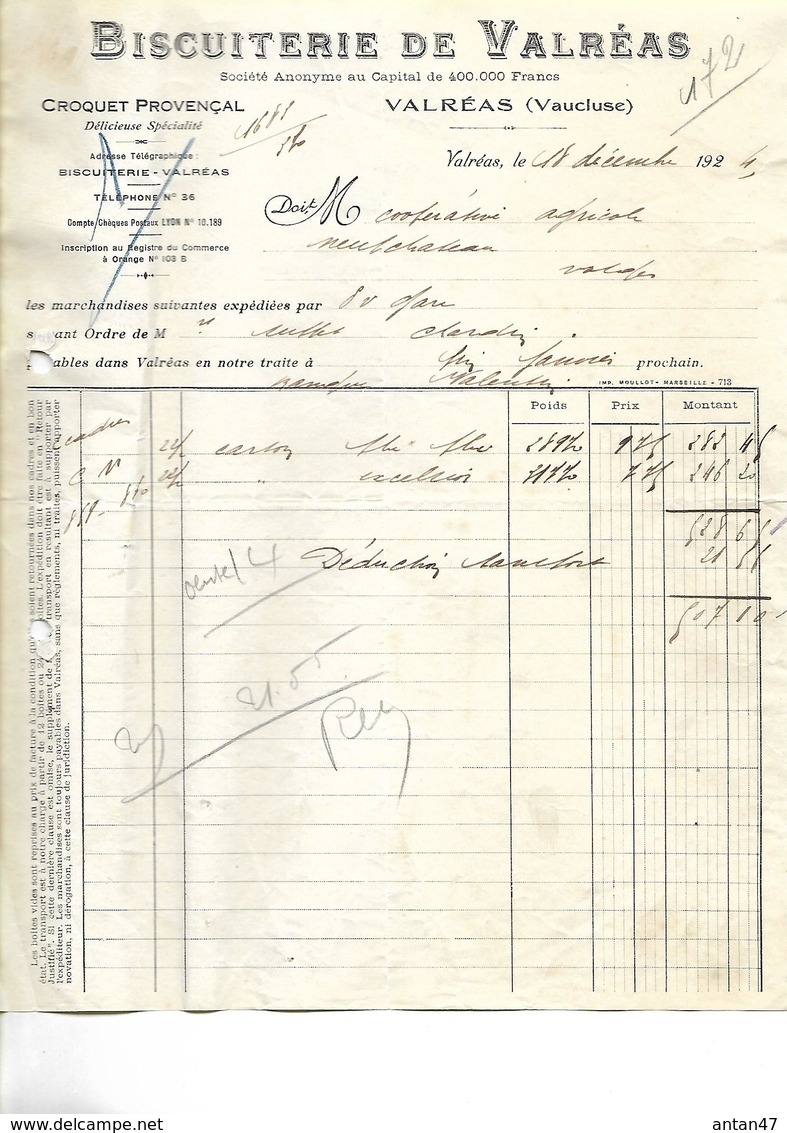 BISCUITERIE DE VALRÉAS
Société Anonyme au Capital de 400.000 Francs
172
CROQUET PROVENÇAL
VALRÉAS (Vaucluse)
Délicieuse Spécialité
Adresse Télégraphique :
BISCUITERIE - VALRÉAS
TÉLÉPHONE N° 36
Compte Chèques Postaux LYON N° 10.189
Inscription au Registre du Commerce
à Orange N° 103 B
Valréas, le 18 décembre 1924
Doit M coopérative agricole
neufchateau
vosges
les marchandises suivantes expédiées par gare
s ant Ordre de M
ables dans Valréas en notre traite à fin Janvier prochain.
IMP. MOULLOT - MARSEILLE - 713
Poids Prix Montant
carton 28970 975 282 45
" excelsior 31770 775 246 20
528 65
Déduction 21 55
507 10
21.55
Les boîtes vides sont reprises au prix de facture à la condition qu' soient retournées dans nos cadres et en bon
état. Le transport est à notre charge à partir de 12 boîtes ou 24 boîtes. L'expédition doit être faite en "Retour
Justifié". Si cette dernière clause est omise, le supplément de transport en resultant est à supporter par
l'expéditeur. Les marchandises sont toujours payables dans Valréas, sans que règlements, ni traites, puissent apporter
novation, ni dérogation, à cette clause de juridiction.
antan47